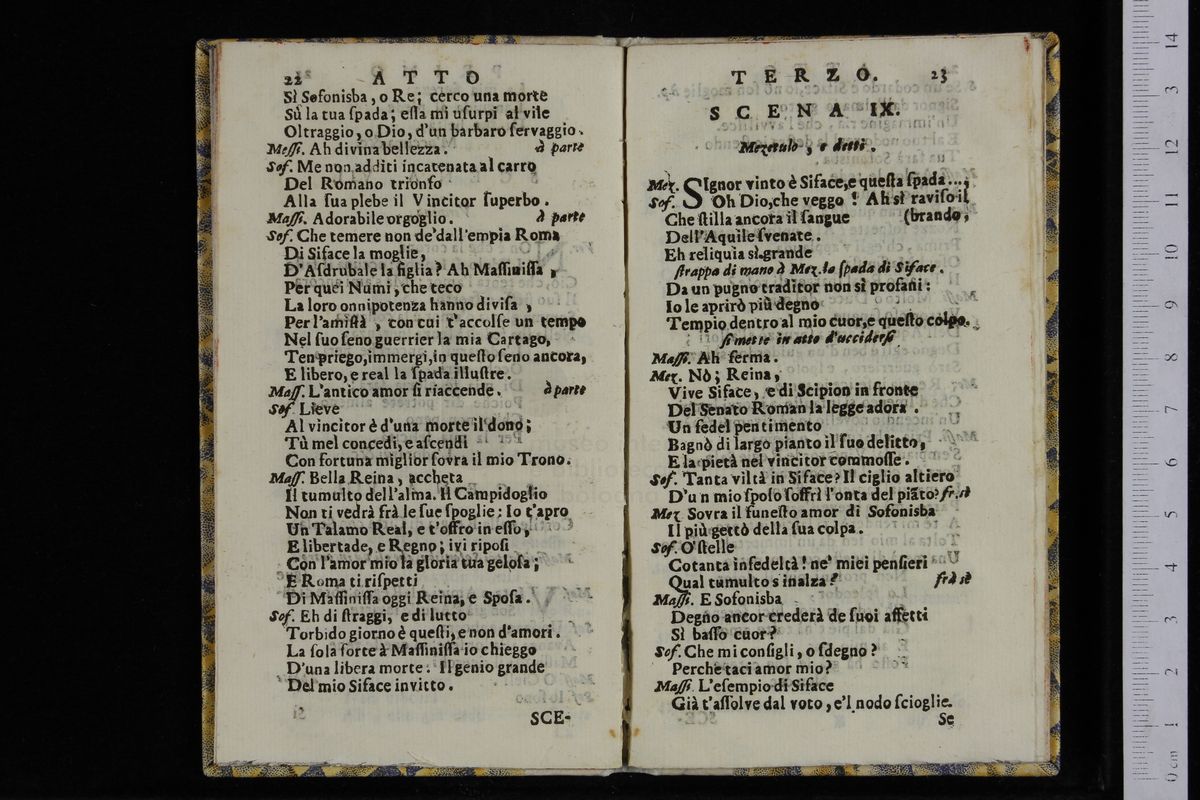 22 ATTO
Sì Sofonisba, o Re; cerco una morte
Sù la tua ſpada; eſſa mi uſurpi al vile
Oltraggio, o Dio, d'un barbaro ſervaggio.
Meſſi. Ah divina bellezza. à parte
Sof. Me non additi incatenata al carro
Del Romano trionfo
Alla ſua plebe il Vincitor ſuperbo.
Maſſi. Adorabile orgoglio. à parte
Sof. Che temere non de' dall'empia Roma
Di Siface la moglie,
D'Aſdrubale la figlia? Ah Maſſiniſſa,
Per quei Numi, che teco
La loro onnipotenza hanno diviſa,
Per l'amiſtà, con cui t'accolſe un tempo
Nel ſuo ſeno guerrier la mia Cartago,
Ten priego, immergi, in queſto ſeno ancora,
E libero, e real la ſpada illuſtre.
Maſſ. L'antico amor ſi riaccende. à parte
Sof. Lieve
Al vincitor è d'una morte il dono;
Tù mel concedi, e aſcendi
Con fortuna miglior ſovra il mio Trono.
Maſſ. Bella Reina, accheta
Il tumulto dell'alma. Il Campidoglio
Non ti vedrà frà le ſue ſpoglie: Io t'apro
Un Talamo Real, e t'offro in eſſo,
E libertade, e Regno; ivi ripoſi
Con l'amor mio la gloria tua geloſa;
E Roma ti riſpetti
Di Maſſiniſſa oggi Reina, e Spoſa.
Sof. Eh di ſtraggi, e di lutto
Torbido giorno è queſti, e non d'amori.
La ſola ſorte à Maſſiniſſa io chieggo
D'una libera morte. Il genio grande
Del mio Siface invitto.
SCE-
TERZO. 23
SCENA IX.
Mezetulo, e detti.
Mez. SIgnor vinto è Siface, e queſta ſpada....;
Sof. Oh Dio, che veggo! Ah sì raviſo il
Che ſtilla ancora il ſangue (brando,
Dell'Aquile ſvenate.
Eh reliquia sì grande
ſtrappa di mano à Mez. la ſpada di Siface.
Da un pugno traditor non sì profani:
Io le aprirò più degno
Tempio dentro al mio cuor, e queſto colpo.
ſi mette in atto d'ucciderſi
Maſſi. Ah ferma.
Mez. Nò; Reina,
Vive Siface, e di Scipion in fronte
Del Senato Roman la legge adora.
Un fedel pentimento
Bagnò di largo pianto il ſuo delitto,
E la pietà nel vincitor commoſſe.
Sof. Tanta viltà in Siface? Il ciglio altiero
D'un mio ſpoſo ſoffrì l'onta del piãto? fr. sè
Mez Sovra il funeſto amor di Sofonisba
Il più gettò della ſua colpa.
Sof. O' ſtelle
Cotanta infedeltà! ne' miei penſieri
Qual tumulto s'inalza? frà sè
Maſſi. E Sofonisba
Degno ancor crederà de ſuoi affetti
Sì baſſo cuor?
Sof. Che mi conſigli, o ſdegno?
Perche taci amor mio?
Maſſi. L'eſempio di Siface
Già t'aſſolve dal voto, e'l nodo ſcioglie.
Se